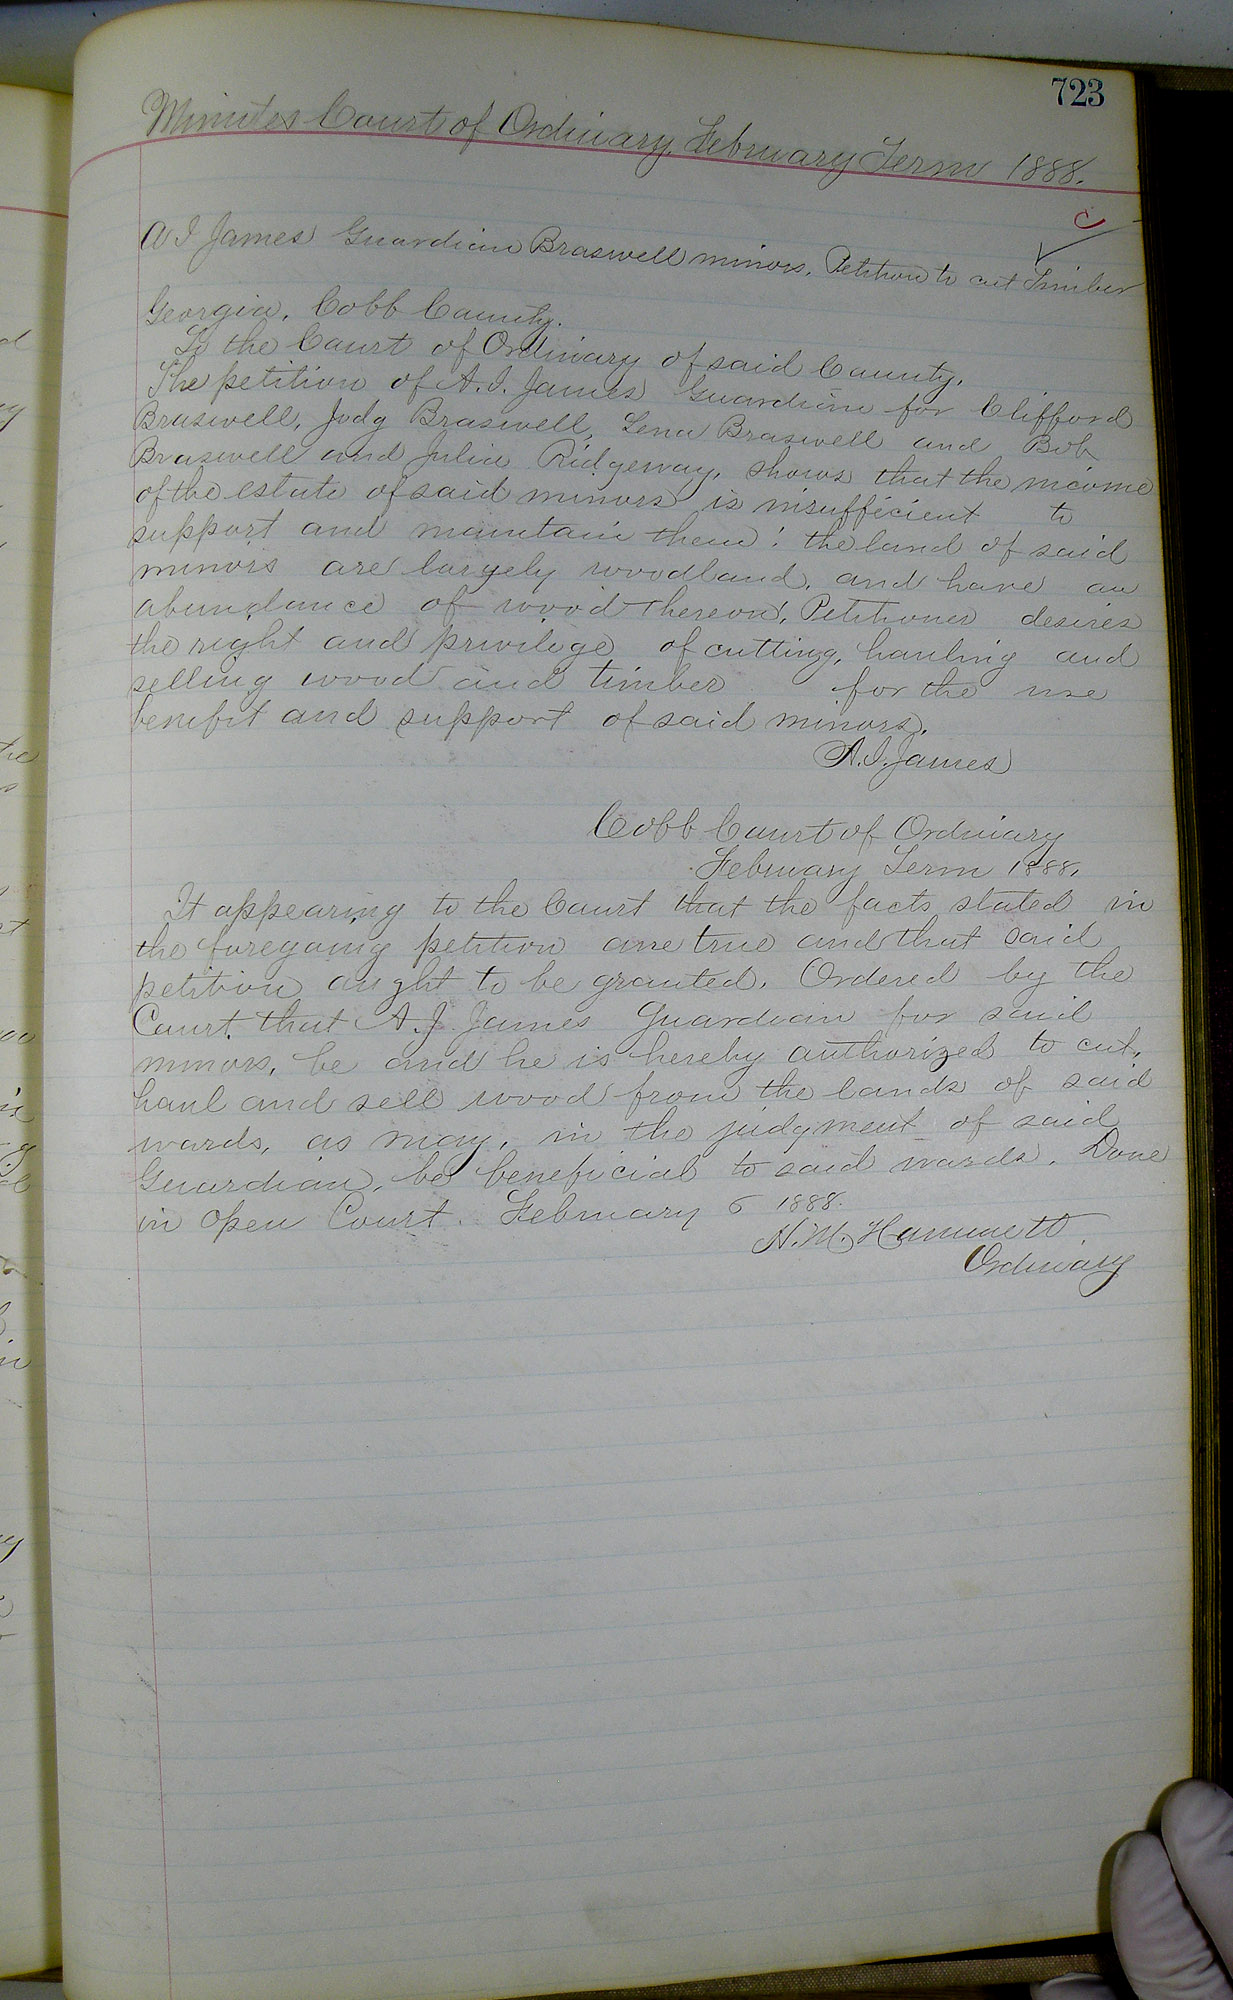 723
Minutes Court of Ordinary, February Term 1888.
C
A I James Guardian Braswell minors. Petition to cut Timber
Georgia, Cobb County.
To the Court of Ordinary of said County.
The petition of A. I. James Guardian for Clifford
Braswell, Judg Braswell, Lena Braswell and Bob
Braswell and Julia Ridgeway, shows that the income
of the estate of said minors is insufficient to
support and maintain them; the land of said
minors are largely woodland, and have an
abundance of wood thereon; Petitioner desires
the right and privilege of cutting, hauling and
selling wood and timber for the use
benefit and support of said minors.
A. I. James
Cobb Court of Ordinary
February Term 1888.
It appearing to the Court that the facts stated in
the foregoing petition are true and that said
petition aught to be granted. Ordered by the
Court that A. J. James Guardian for said
minors, be and he is hereby authorized to cut,
haul and sell wood from the lands of said
wards, as may, in the judgment of said
Guardian, be beneficial to said wards. Done
in open Court. February 6 1888.
H. M. Hammett
Ordinary